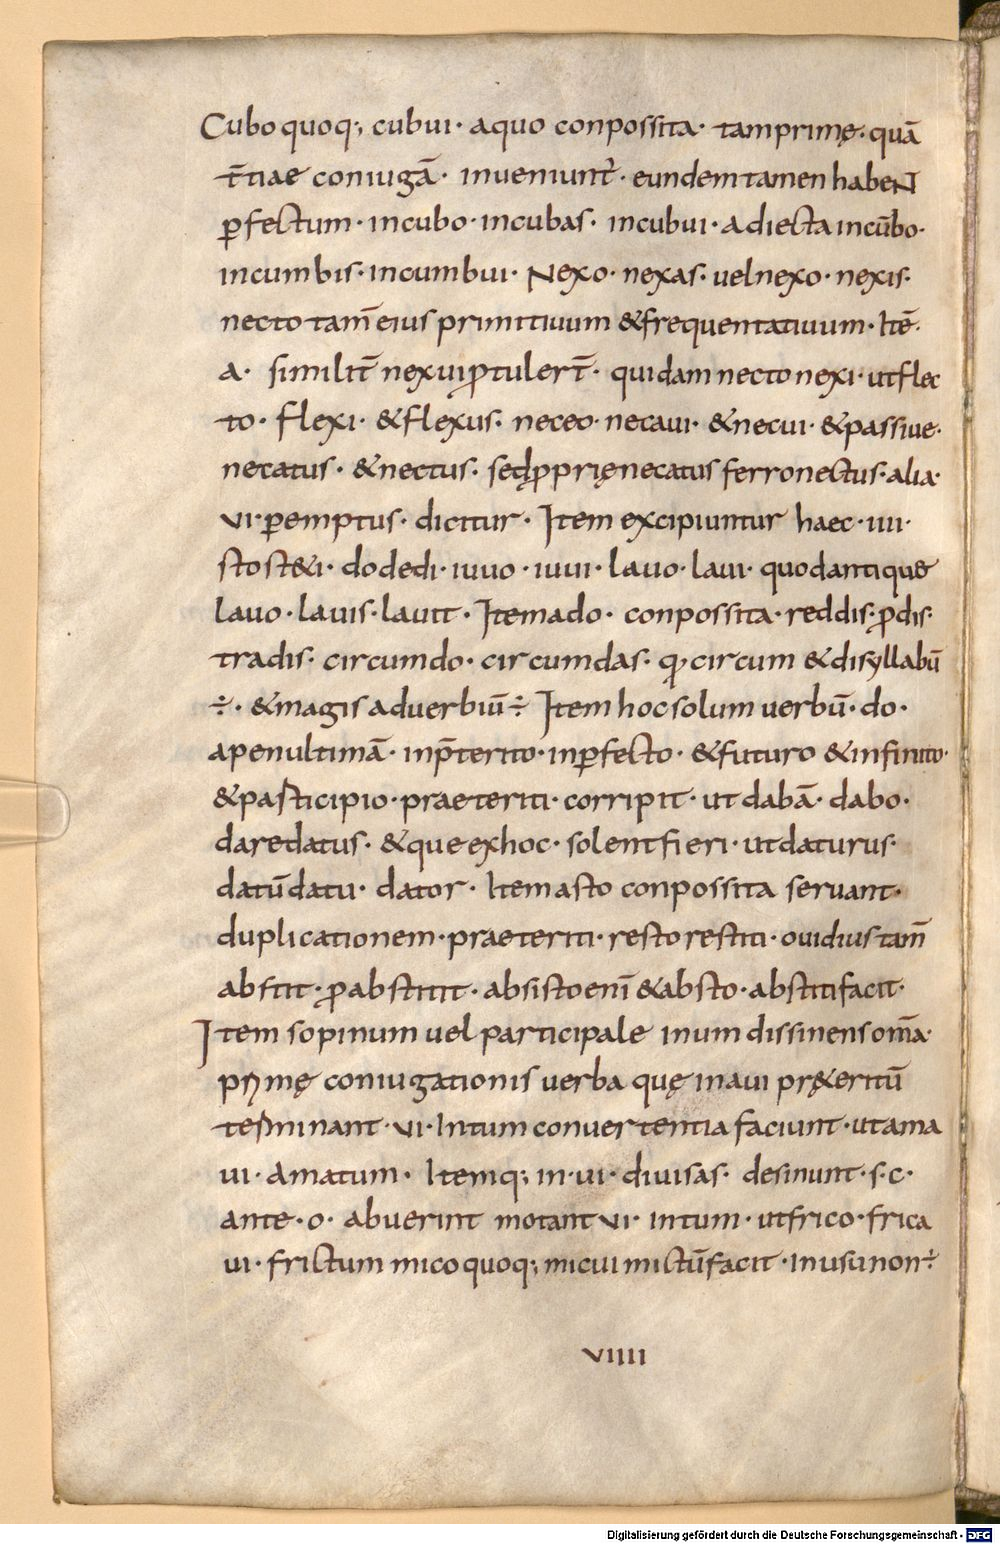 Cubo quoq; cubui · aquo conpossita · tam primę · quā
t̄tiae coniugā · inueniunt̄ · eundem tamen habeN
ꝑfectum · incubo · incubas · incubui · adiecta incūbo ·
incumbis · incumbui · Nexo · nexas · uel nexo · nexis ·
necto tam̄ eius primitiuum & frequentatiuum · Itē ·
a · similit̄ nexui ꝓtulert̄ · quidam necto nexi · ut flec
to · flexi · & flexus · neceo · necaui · & necui · & passiue ·
necatus · & nectus · sed ꝓprię necatus ferro nectus · alia ·
vi · ꝑemptus · dicitur · Item excipiuntur haec · iiii ·
sto st&i · do dedi · iuuo · iuui · lauo · laui · quod antique
lauo · lauis · lauit · Item a do · conpossita · reddis · ꝓdis ·
tradis · circumdo · circumdas · q' circum & disyllabū
÷ · & magis aduerbiū ÷ Item hoc solum uerbū · do ·
a penultimā · in p̄terito · inꝑfecto · & futuro & infinito ·
& pasticipio · praeteriti · corripit · ut dabā · dabo ·
dare datus · & que ex hoc · solent fieri · ut daturus ·
datū datu · dator · Item a sto conpossita seruant ·
duplicationem · praeteriti · resto restiti · ouidius tam̄
abstit · ꝓ abstitit · absisto eni̅ & absto · abstiti facit ·
Item sopinum uel participale in um dissinens om̄a ·
prymę coniugationis uerba quę in aui pręt&eritū
terminant · vi · In tum conuertentia faciunt · ut ama
ui · amatum · Itemq; in · ui · diuisas · desinunt · s · c ·
ante · o · abuerint motant vi · in tum · ut frico · frica
ui · frictum mico quoq; micui mictū facit · In usu non ÷
viiii
Digitalisierung gefördert durch die Deutsche Forschungsgemeinschaft - DFG